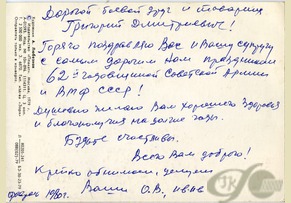 Дорогой боевой друг и товарищ
Григорий Дмитриевич!
Горячо поздравляю Вас и Вашу супругу
с самым дорогим нам праздником
62-й годовщиной Советской Армии
и ВМФ СССР!
Душевно желаю Вам хорошего здоровья
и благополучия на долгие годы.
Будьте счастливы.
Всего Вам доброго!
Крепко обнимаем, целуем
Ваши О.В.
февраль 1980г.